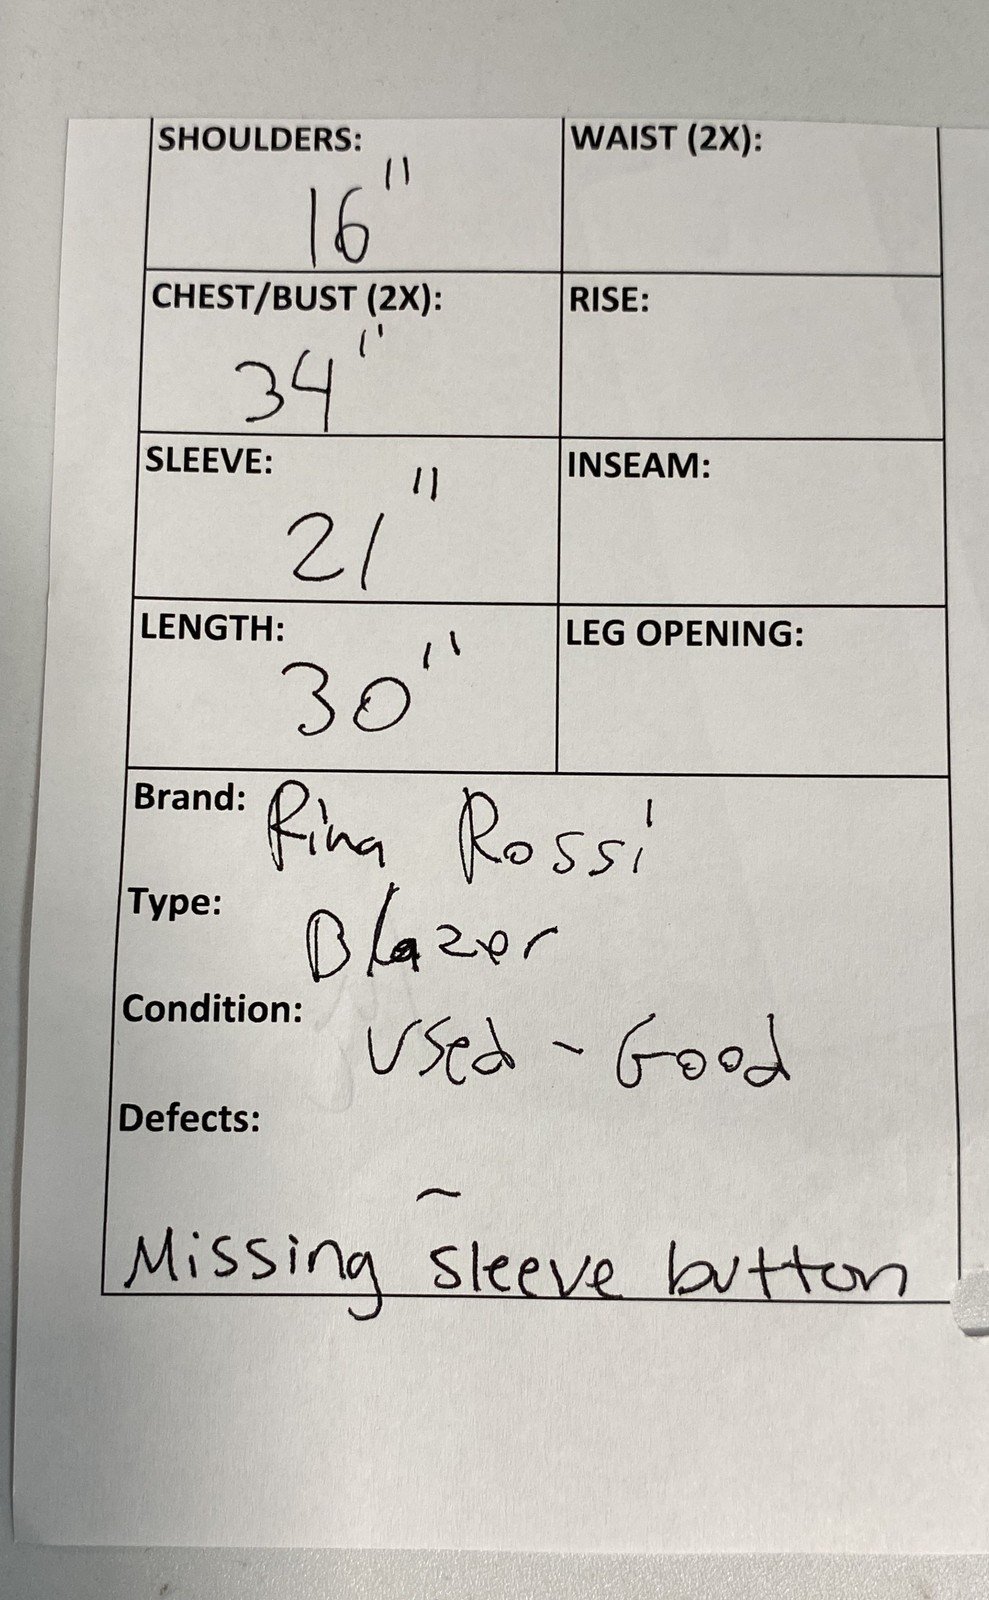 SHOULDERS:
16"
WAIST (2X):
CHEST/BUST (2X):
34"
RISE:
SLEEVE:
21"
INSEAM:
LENGTH:
30"
LEG OPENING:
Brand: Rina Rossi
Type: Blazer
Condition: Used - Good
Defects:
-
Missing sleeve button